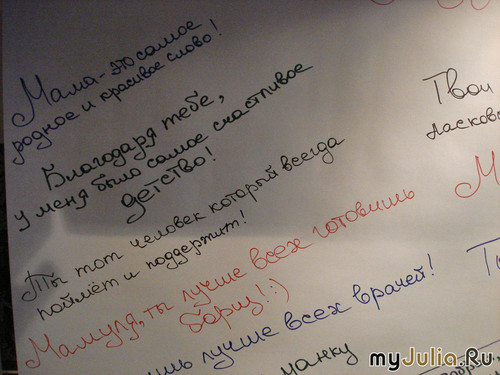 Мама - это самое
родное и красивое слово!
Благодаря тебе,
у меня было самое счастливое
детство!
Ты тот человек который всегда
поймёт и поддержит!
Мамуля, ты лучше всех готовишь
борщ!:)
лучше всех врачей!
манку
Твои
ласково
myJulia.Ru